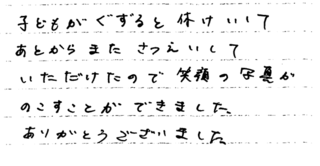 子どもがぐずると休けいして
あとからまたさつえいして
いただけたので笑顔の写真が
のこすことができました。
ありがとうございました。